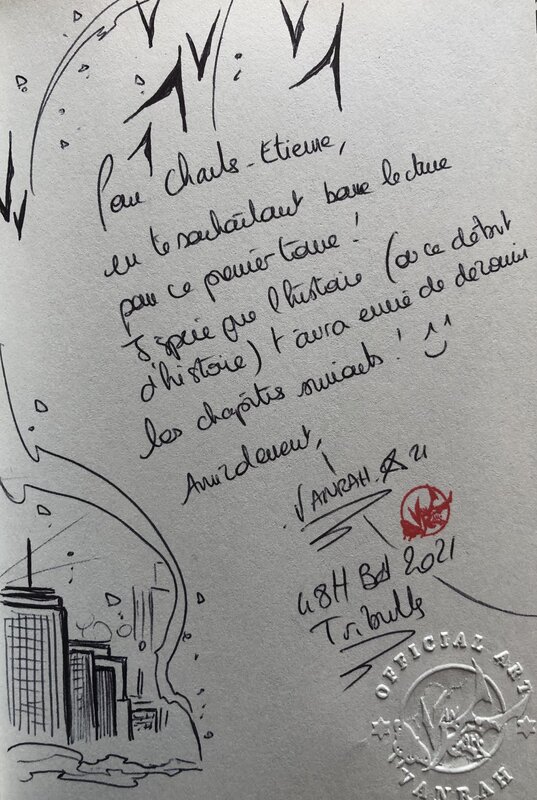 Pour Charles-Etienne,
en te souhaitant bonne lecture
pour ce premier tome !
J'espère que l'histoire (ou ce début
d'histoire) t'aura envie de
les chapitres suivants ! ^^
Amicalement,
VANRAH 21
48H Bd 2021
Tribulls
OFFICIAL ART
VANRAH